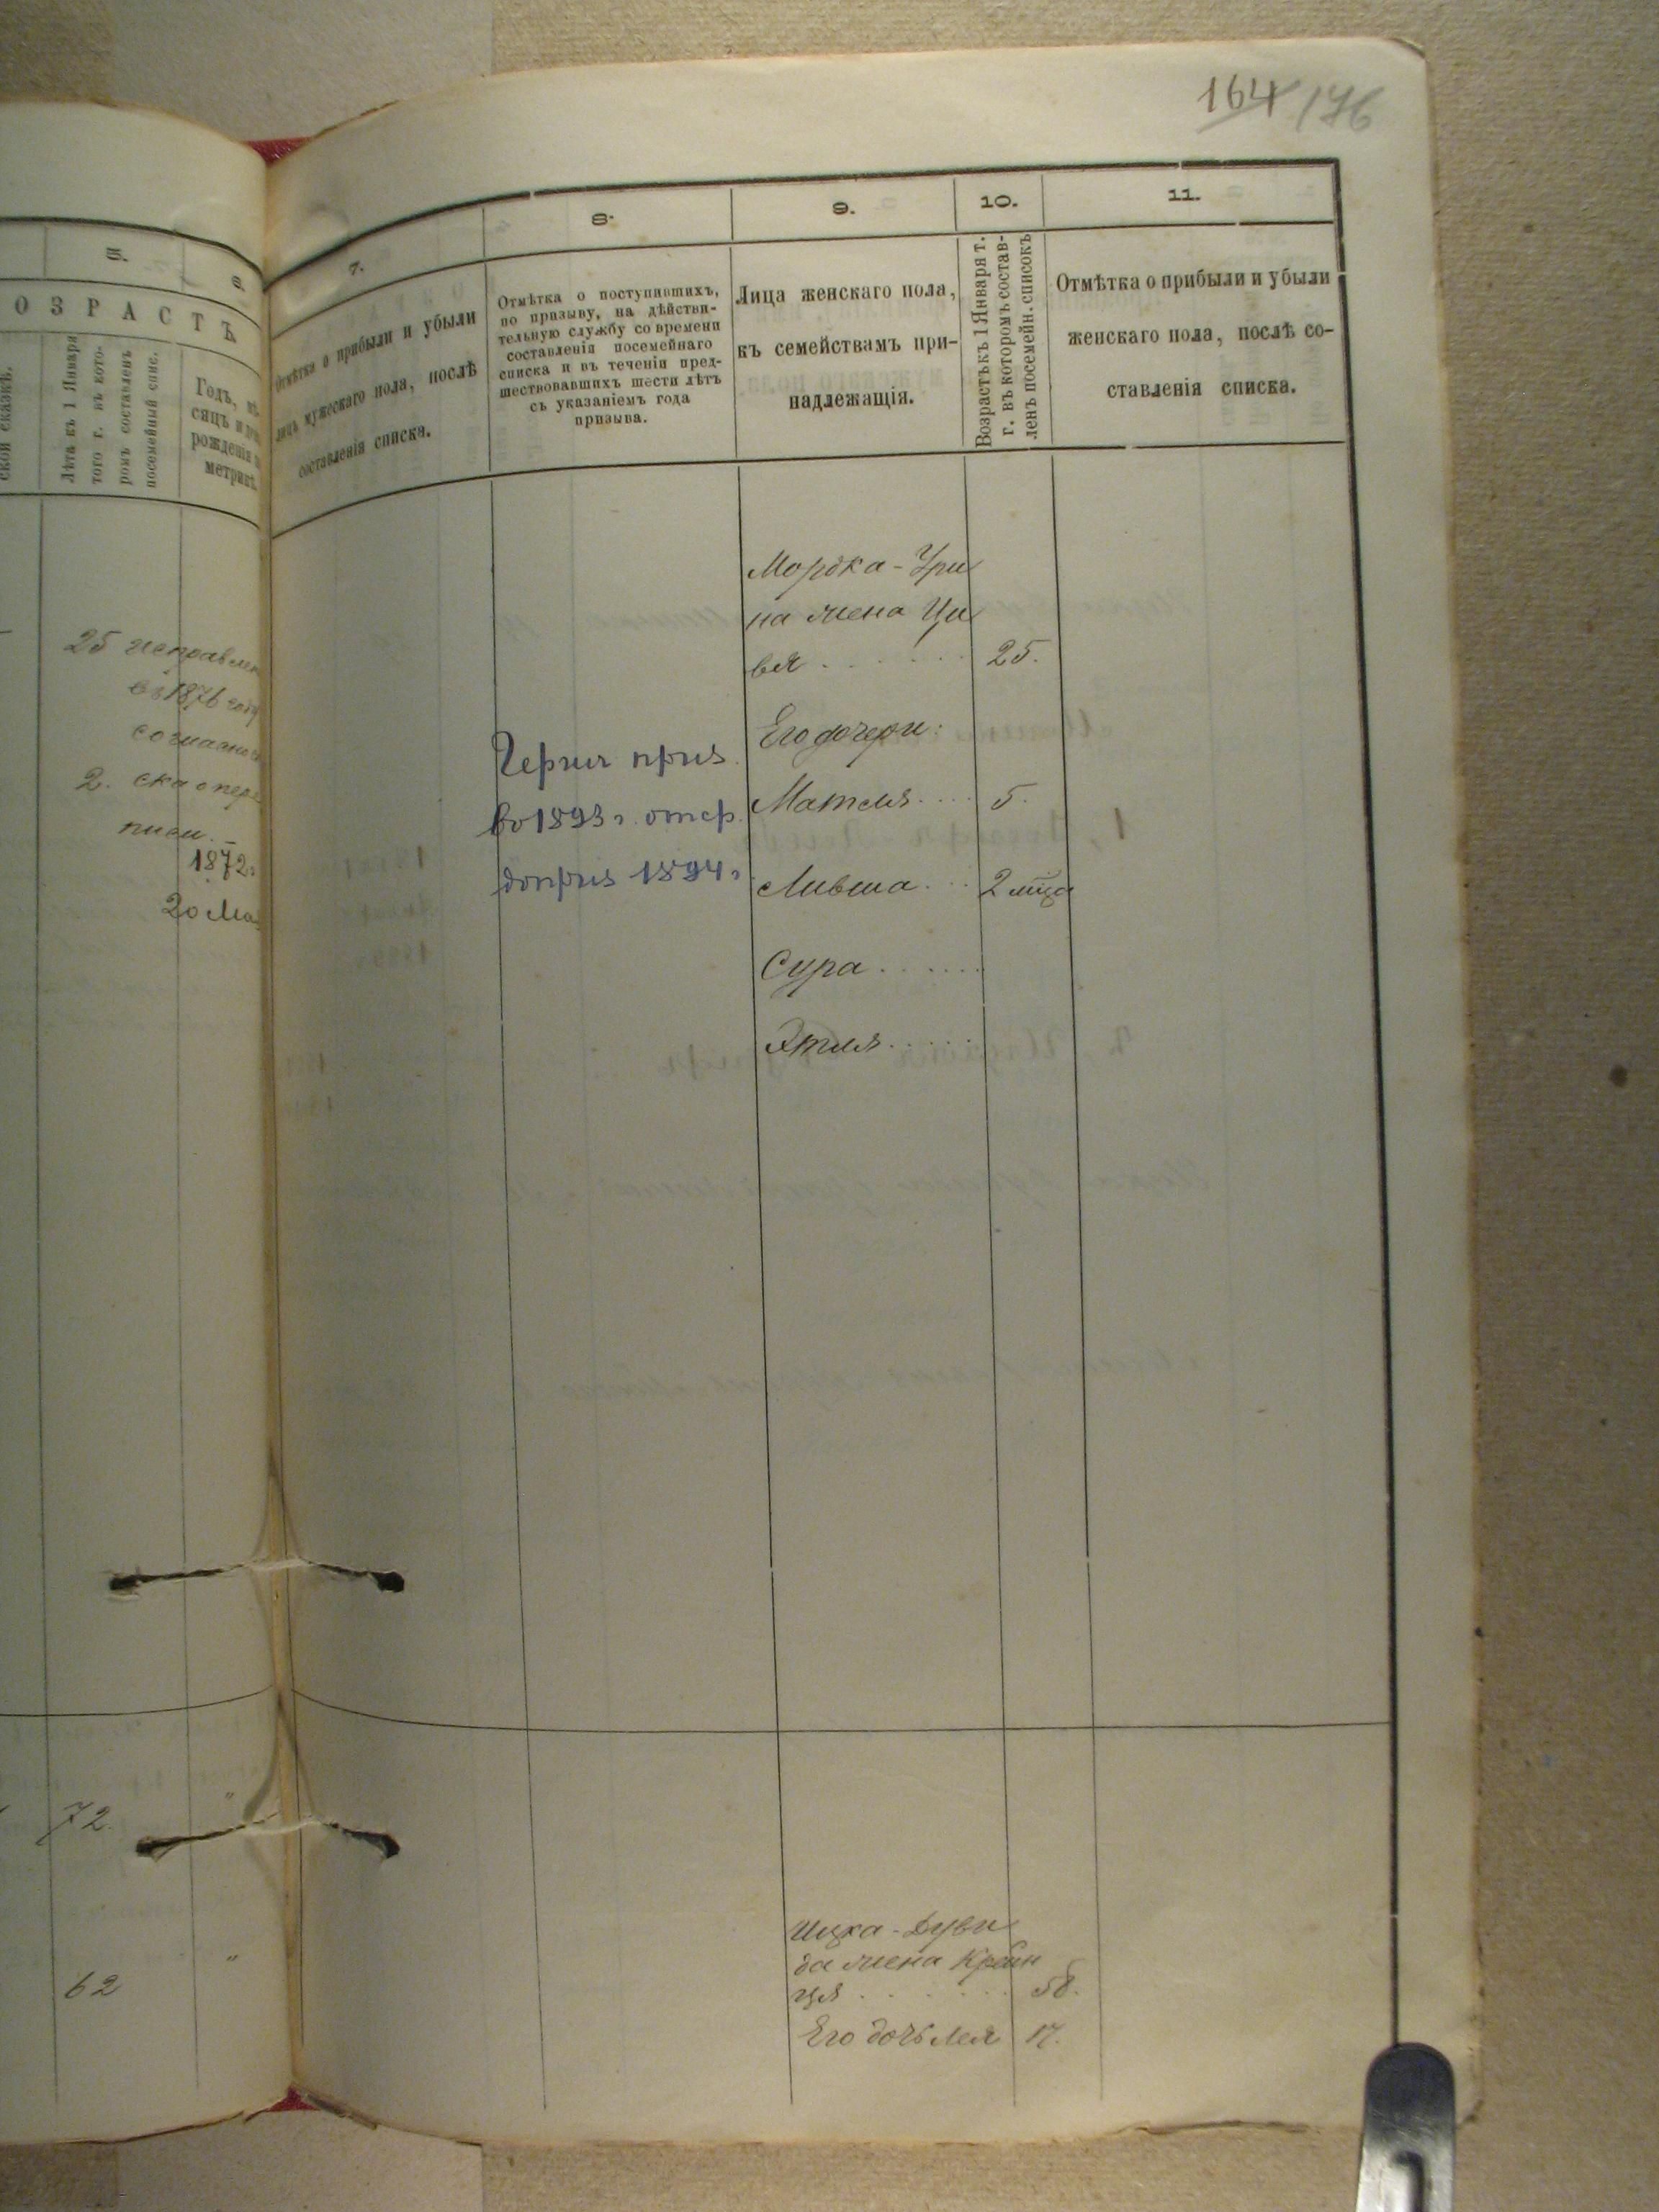 164 176
5.
6.
7.
8.
9.
10.
11.
ОЗРАСТЪ
ской сказкѣ.
Лѣта къ 1 Января
того г. въ кото-
ромъ составленъ
посемейный спис.
Годъ, мѣ-
сяцъ и день
рожденія по
метрикѣ.
Отмѣтка о прибыли и убыли
лицъ мужескаго пола, послѣ
составленія списка.
Отмѣтка о поступившихъ,
по призыву, на дѣйстви-
тельную службу со времени
составленія посемейнаго
списка и въ теченіи пред-
шествовавшихъ шести лѣтъ
съ указаніемъ года
призыва.
Лица женскаго пола,
къ семействамъ при-
надлежащія.
Возрастъ къ 1 Января т.
г. въ которомъ состав-
ленъ посемейн. списокъ
Отмѣтка о прибыли и убыли
женскаго пола, послѣ со-
ставленія списка.
25 исправлен
въ 1876 году
согласно
2.
писи.
1872 г.
20 Ма
во 1893 г. отср.
1894 г.
Мордка-Ури
на жена Ци
вья 25.
Его дочери:
Матля 5.
Ливша 2 мца
Сура
Этля
72. "
62 "
Ицка-Дуви
да жена Крейн
ця 58.
Его дочь Лея 17.